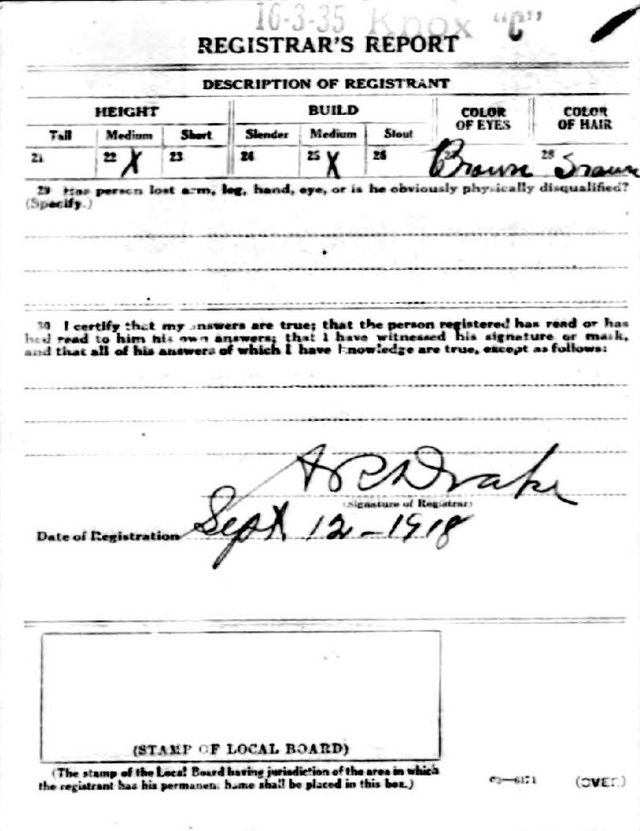 16-3-35 Knox "C"
REGISTRAR'S REPORT
DESCRIPTION OF REGISTRANT
HEIGHT BUILD COLOR OF EYES COLOR OF HAIR
Tall Medium Short Slender Medium Stout
21 22 X 23 24 25 X 26 Brown 28 Brown
29 Has person lost arm, leg, hand, eye, or is he obviously physically disqualified?
(Specify.)
30 I certify that my answers are true; that the person registered has read or has
had read to him his own answers; that I have witnessed his signature or mark,
and that all of his answers of which I have knowledge are true, except as follows:
Drake
(Signature of Registrar)
Date of Registration Sept 12-1918
(STAMP OF LOCAL BOARD)
(The stamp of the Local Board having jurisdiction of the area in which
the registrant has his permanent home shall be placed in this box.)
03—6171 (OVER)